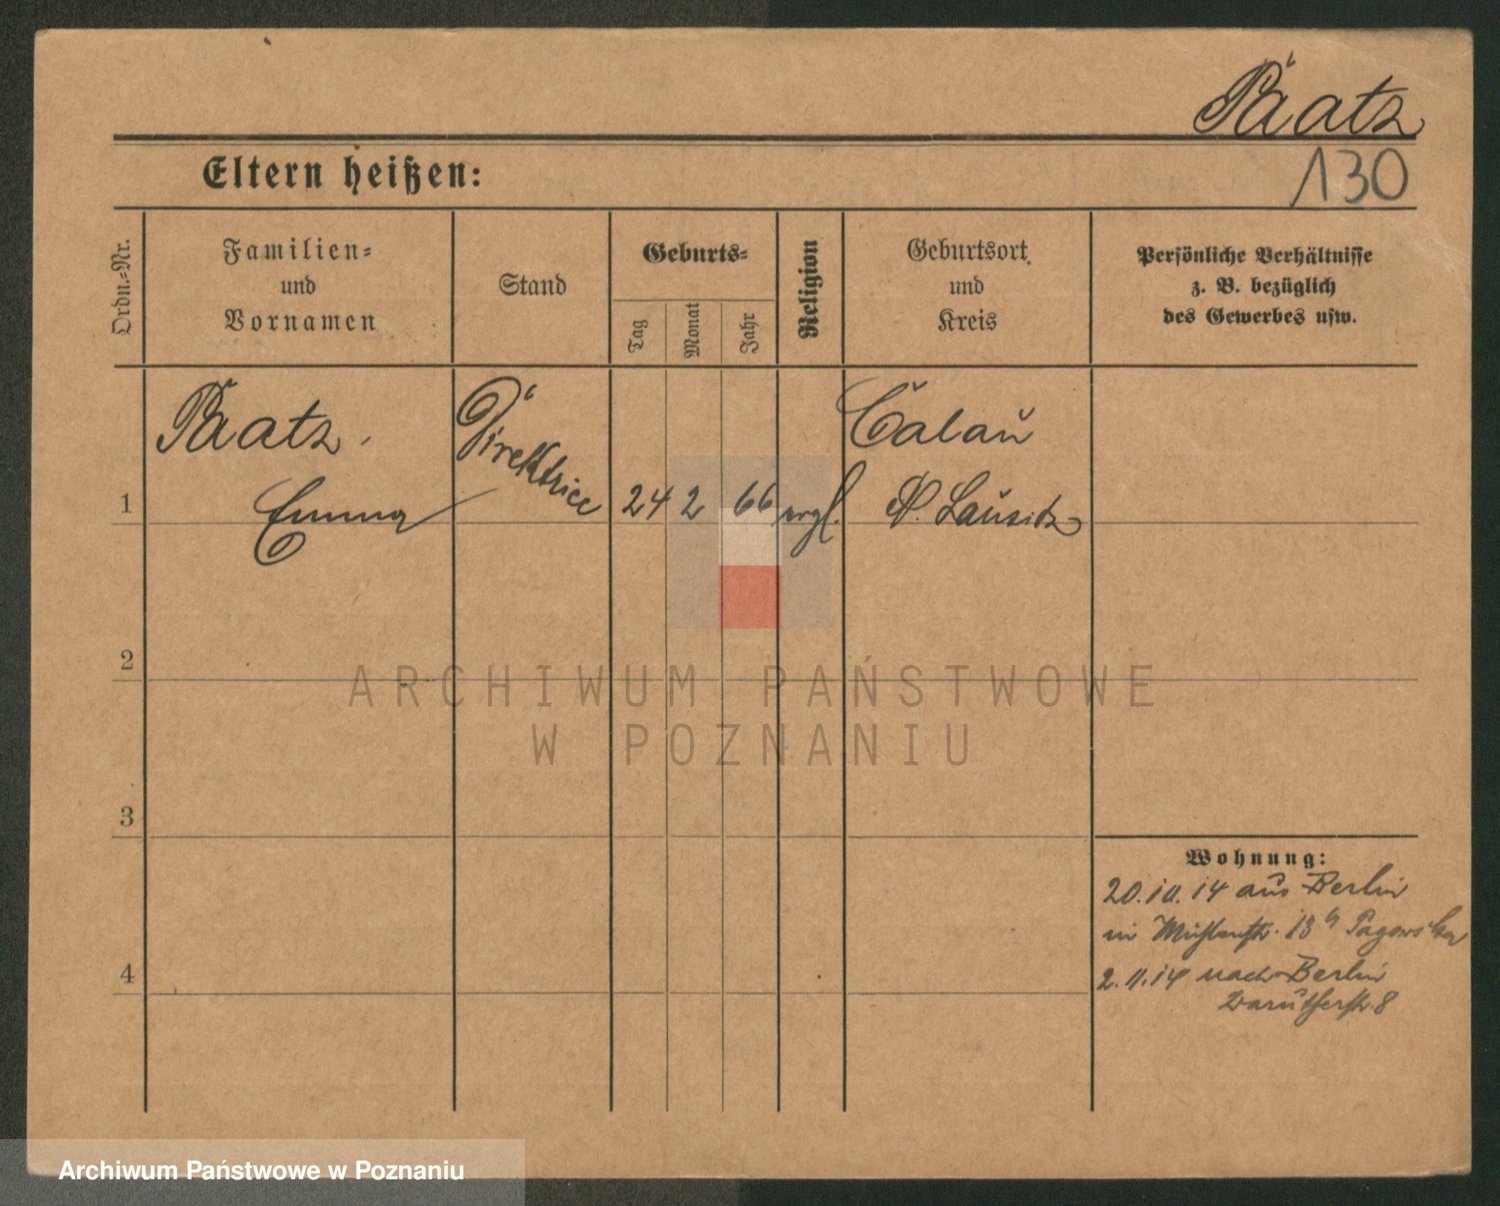 Paatz
130
Eltern heißen:
Ordn.-Nr.
Familien-
und
Vornamen
Stand
Geburts-
Tag
Monat
Jahr
Religion
Geburtsort
und
Kreis
Persönliche Verhältnisse
z. B. bezüglich
des Gewerbes usw.
Paatz.
Emma
Direktrice
24 2 66 evgl.
Calau
N. Lausitz
1
2
3
4
Wohnung:
20.10.14 aus Berlin
in Mühlenstr. 13 Pagowska
2.11.14 nach Berlin
Barutherstr. 8
ARCHIWUM PAŃSTWOWE
W POZNANIU
Archiwum Państwowe w Poznaniu